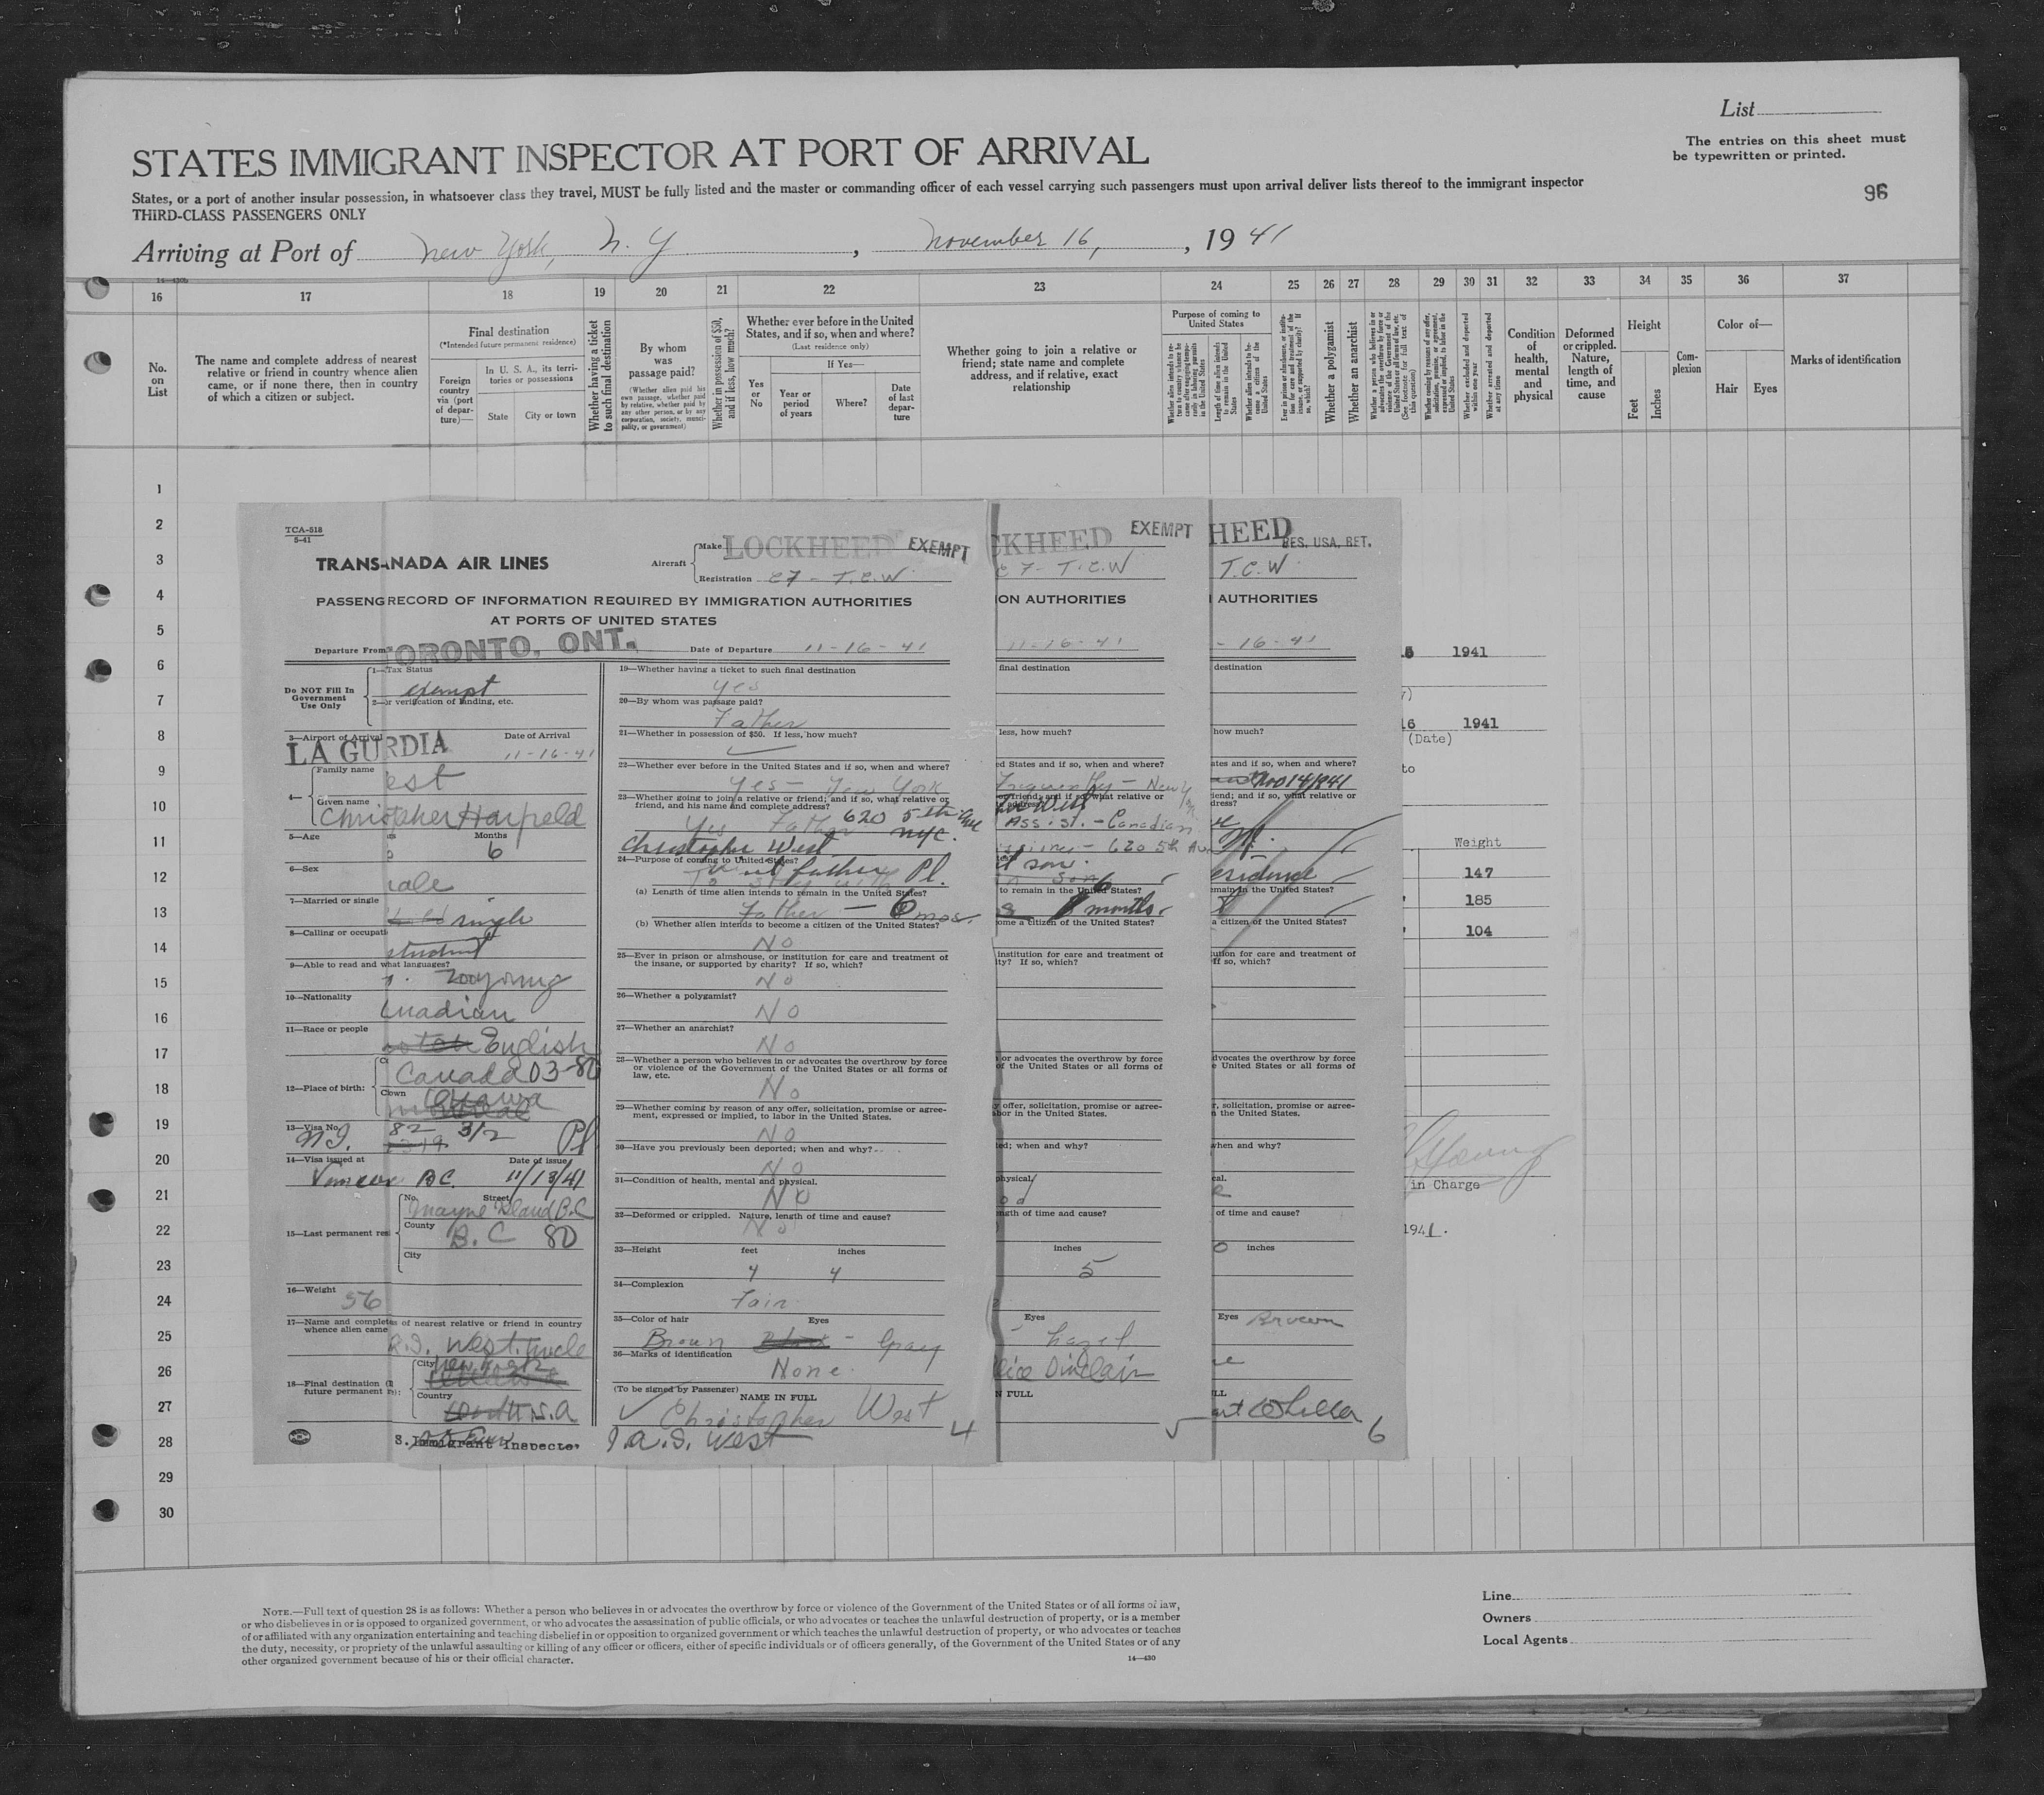 List
The entries on this sheet must
be typewritten or printed.
STATES IMMIGRANT INSPECTOR AT PORT OF ARRIVAL
States, or a port of another insular possession, in whatsoever class they travel, MUST be fully listed and the master or commanding officer of each vessel carrying such passengers must upon arrival deliver lists thereof to the immigrant inspector
THIRD-CLASS PASSENGERS ONLY
96
Arriving at Port of New York, N. Y , November 16, , 19 41
14—430b
16 17 18 19 20 21 22 23 24 25 26 27 28 29 30 31 32 33 34 35 36 37
No. on List
The name and complete address of nearest relative or friend in country whence alien came, or if none there, then in country of which a citizen or subject.
Final destination
(*Intended future permanent residence)
Foreign country via (port of departure)—
In U. S. A., its territories or possessions
State
City or town
Whether having a ticket to such final destination
By whom was passage paid?
(Whether alien paid his own passage, whether paid by relative, whether paid by any other person, or by any corporation, society, municipality, or government)
Whether in possession of $50, and if less, how much?
Whether ever before in the United States, and if so, when and where?
(Last residence only)
Yes or No
If Yes—
Year or period of years
Where?
Date of last departure
Whether going to join a relative or friend; state name and complete address, and if relative, exact relationship
Purpose of coming to United States
Length of time alien intends to remain in the United States
Whether alien intends to become a citizen of the United States
Whether a polygamist
Whether an anarchist
Whether excluded and deported within one year
Whether arrested and deported at any time
Condition of health, mental and physical
Deformed or crippled. Nature, length of time, and cause
Height
Feet
Inches
Complexion
Color of—
Hair
Eyes
Marks of identification
1
2
3
4
5
6
7
8
9
10
11
12
13
14
15
16
17
18
19
20
21
22
23
24
25
26
27
28
29
30
TCA-518
5-41
TRANS-NADA AIR LINES
Aircraft
Make LOCKHEED EXEMPT
Registration C7 - T.C.W
PASSENG RECORD OF INFORMATION REQUIRED BY IMMIGRATION AUTHORITIES
AT PORTS OF UNITED STATES
Departure From ORONTO, ONT. Date of Departure 11-16-41
Do NOT Fill In
Government
Use Only
1—Tax Status
exempt
2— or verification of landing, etc.
3—Airport of Arrival Date of Arrival
LA GURDIA 11-16-41
4— Family name est
Given name Christopher Harfield
5—Age Months
6
6—Sex
ale
7—Married or single
single
8—Calling or occupati
student
9—Able to read and what languages?
Too young
10—Nationality
nadian
11—Race or people
English
12—Place of birth:
Canada 03-80
Ottawa
13—Visa No.
N.I. 82 3/2 Pl
14—Visa issued at Date of issue
B.C. 11/13/41
15—Last permanent resi
No. Street
Mayne Island B.C
County
B.C 80
City
16—Weight
56
17—Name and completes of nearest relative or friend in country
whence alien came
West. Uncle
18—Final destination
future permanent
City
New York
Country
U.S.A
S. Immigrant Inspector
19—Whether having a ticket to such final destination
Yes
20—By whom was passage paid?
Father
21—Whether in possession of $50. If less, how much?
22—Whether ever before in the United States and if so, when and where?
Yes - New York
23—Whether going to join a relative or friend; and if so, what relative or
friend, and his name and complete address?
Yes Father 620 5th Ave
NYC.
Christopher West
24—Purpose of coming to United States?
father Pl.
(a) Length of time alien intends to remain in the United States?
Father - 6 mos.
(b) Whether alien intends to become a citizen of the United States?
No
25—Ever in prison or almshouse, or institution for care and treatment of
the insane, or supported by charity? If so, which?
No
26—Whether a polygamist?
No
27—Whether an anarchist?
No
28—Whether a person who believes in or advocates the overthrow by force
or violence of the Government of the United States or all forms of
law, etc.
No
29—Whether coming by reason of any offer, solicitation, promise or agree-
ment, expressed or implied, to labor in the United States.
No
30—Have you previously been deported; when and why?
No
31—Condition of health, mental and physical.
No
32—Deformed or crippled. Nature, length of time and cause?
No
33—Height feet inches
4 4
34—Complexion
Fair
35—Color of hair Eyes
Brown Gray
36—Marks of identification
None.
(To be signed by Passenger)
NAME IN FULL
Christopher West
J.A.S. West 4
CKHEED EXEMPT
7- T.C.W
ON AUTHORITIES
11-16-41
final destination
less, how much?
ed States and if so, when and where?
Frequently - New York
Assist. - Canadian
620 5th Av
son.
to remain in the United States?
months
ome a citizen of the United States?
institution for care and treatment of
ity? If so, which?
or advocates the overthrow by force
of the United States or all forms of
y offer, solicitation, promise or agree-
abor in the United States.
ted; when and why?
physical.
ngth of time and cause?
inches
5
Eyes
hazel
lice Sinclair
N FULL
5
HEED RES. USA. RET.
T.C.W
AUTHORITIES
- 16-41
destination
how much?
ates and if so, when and where?
Nov 14 1941
iend; and if so, what relative or
dress?
esidence
emain in the United States?
a citizen of the United States?
ution for care and treatment of
If so, which?
dvocates the overthrow by force
e United States or all forms of
r, solicitation, promise or agree-
n the United States.
when and why?
cal.
of time and cause?
inches
Eyes Brown
6
1941
16 1941
(Date)
to
Weight
147
185
104
Young
in Charge
1941.
NOTE.—Full text of question 28 is as follows: Whether a person who believes in or advocates the overthrow by force or violence of the Government of the United States or of all forms of law,
or who disbelieves in or is opposed to organized government, or who advocates the assassination of public officials, or who advocates or teaches the unlawful destruction of property, or is a member
of or affiliated with any organization entertaining and teaching disbelief in or opposition to organized government or which teaches the unlawful destruction of property, or who advocates or teaches
the duty, necessity, or propriety of the unlawful assaulting or killing of any officer or officers, either of specific individuals or of officers generally, of the Government of the United States or of any
other organized government because of his or their official character.
14—430
Line
Owners
Local Agents